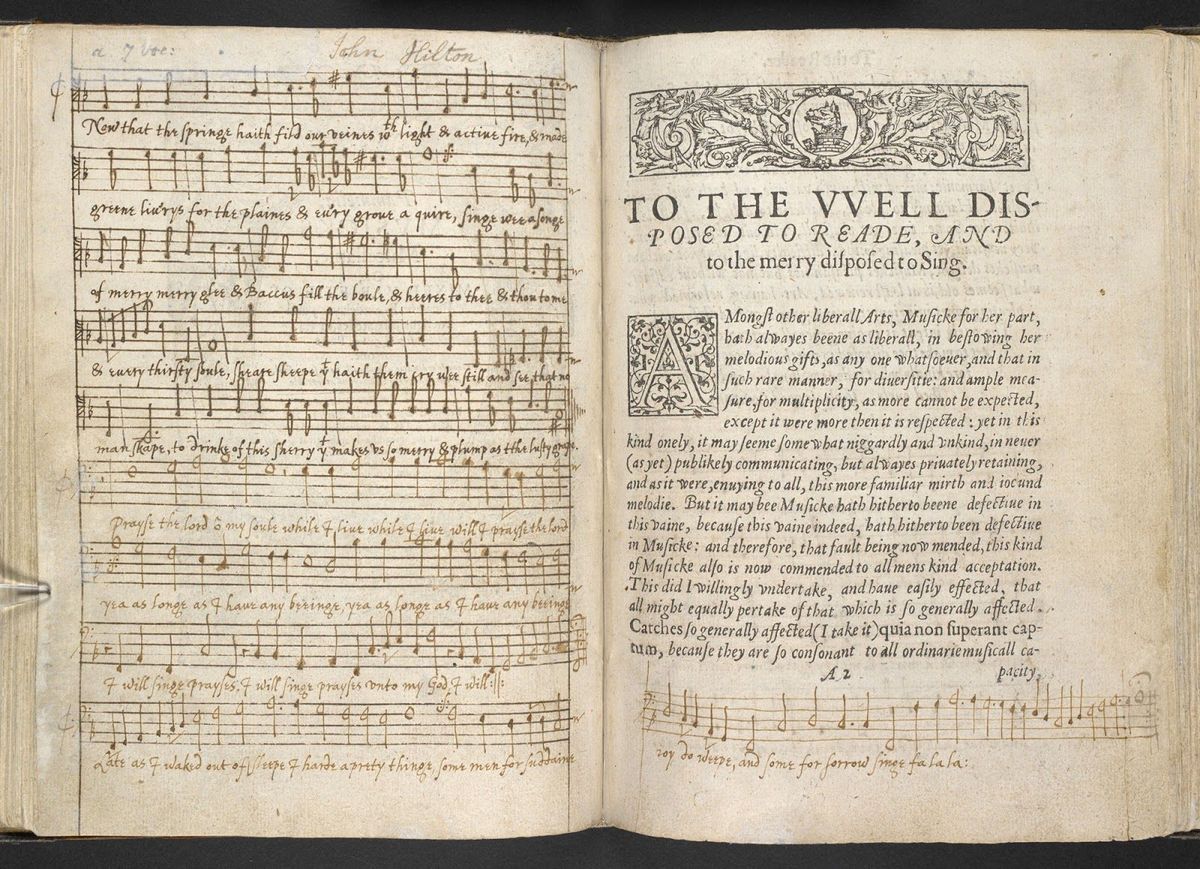 a 7 voc:
John Hilton
Now that the springe haith fild our veines wth light & actiue fire, & made
greene liu'rys for the plaines & eu'ry groue a quire, singe wee a songe
of merry merry glee & Baccus fill the boule, & heeres to thee & thou to me
& euery thirsty soule, sheare sheepe yt haith them cry wee still and see, that no
man skape, to drinke of this sherry yt makes vs so merry & plump as the lusty grape.
Prayse the lord ô my soule while I liue while I liue will I prayse the lord
yea as longe as I haue any beeinge, yea as longe as I haue any beeinge
I will singe prayses, I will singe prayses vnto my God, I will :||:
Late as I waked out of sleepe I harde a prety thinge, some men for suddaine
TO THE VVELL DIS-
POSED TO READE, AND
to the merry disposed to Sing.
AMongst other liberall Arts, Musicke for her part,
hath alwayes beene as liberall, in bestowing her
melodious gifts, as any one whatsoeuer, and that in
such rare manner, for diuersitie: and ample mea-
sure, for multiplicity, as more cannot be expected,
except it were more then it is respected: yet in this
kind onely, it may seeme somewhat niggardly and vnkind, in neuer
(as yet) publikely communicating, but alwayes priuately retaining,
and as it were, enuying to all, this more familiar mirth and iocund
melodie. But it may bee Musicke hath hitherto beene defectiue in
this vaine, because this vaine indeed, hath hitherto been defectiue
in Musicke: and therefore, that fault being now mended, this kind
of Musicke also is now commended to all mens kind acceptation.
This did I willingly vndertake, and haue easily effected, that
all might equally pertake of that which is so generally affected.
Catches so generally affected (I take it) quia non superant cap-
tum, because they are so consonant to all ordinarie musicall ca-
A 2 pacity,
ioy do weepe, and some for sorrow singe fa la la: